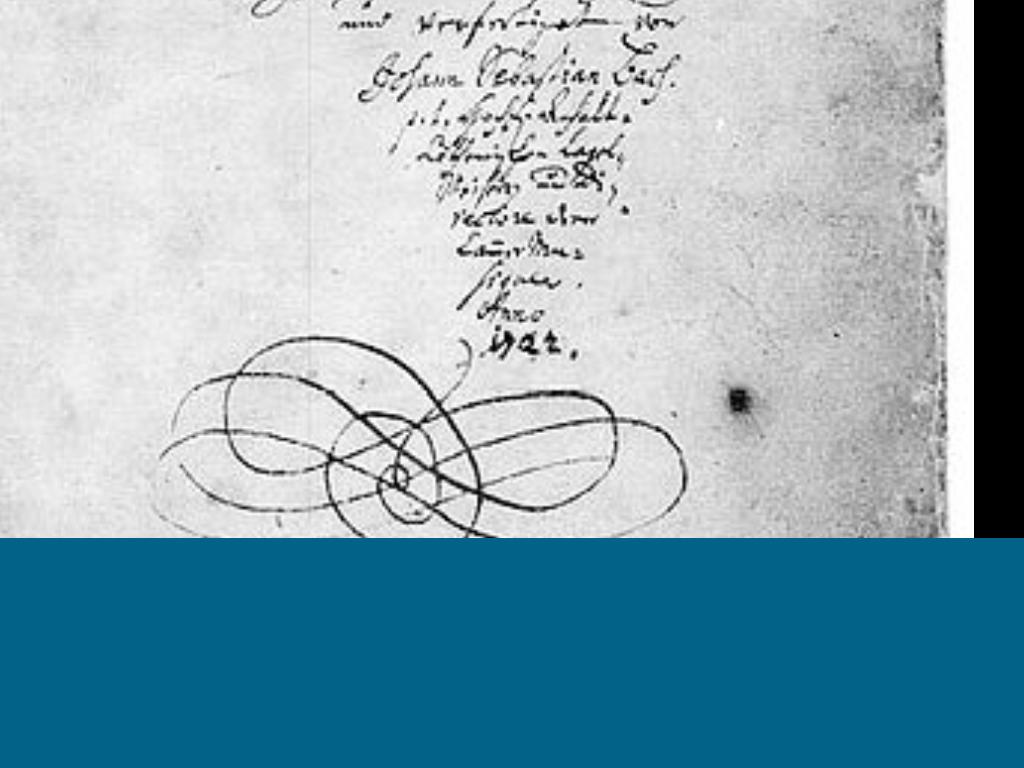 und verfertiget von
Johann Sebastian Bach.
p. t. HochF. Anhalt-
Cöthenischen Capel-
Meistern und Di-
rectore derer
Cam̄er Mu-
siquen.
Anno
1722.